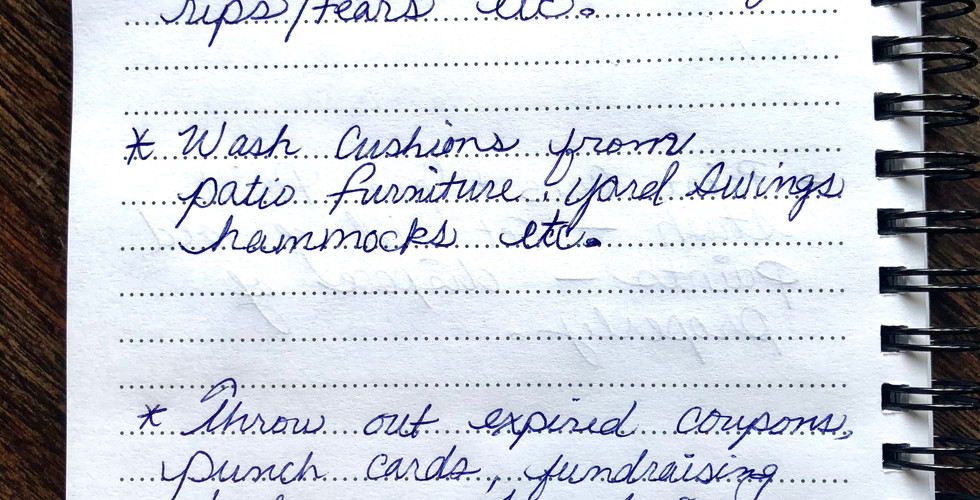 rips/tears etc.
* Wash Cushions from
patio furniture, yard Swings
hammocks etc.
* Throw out expired coupons,
punch cards, fundraising